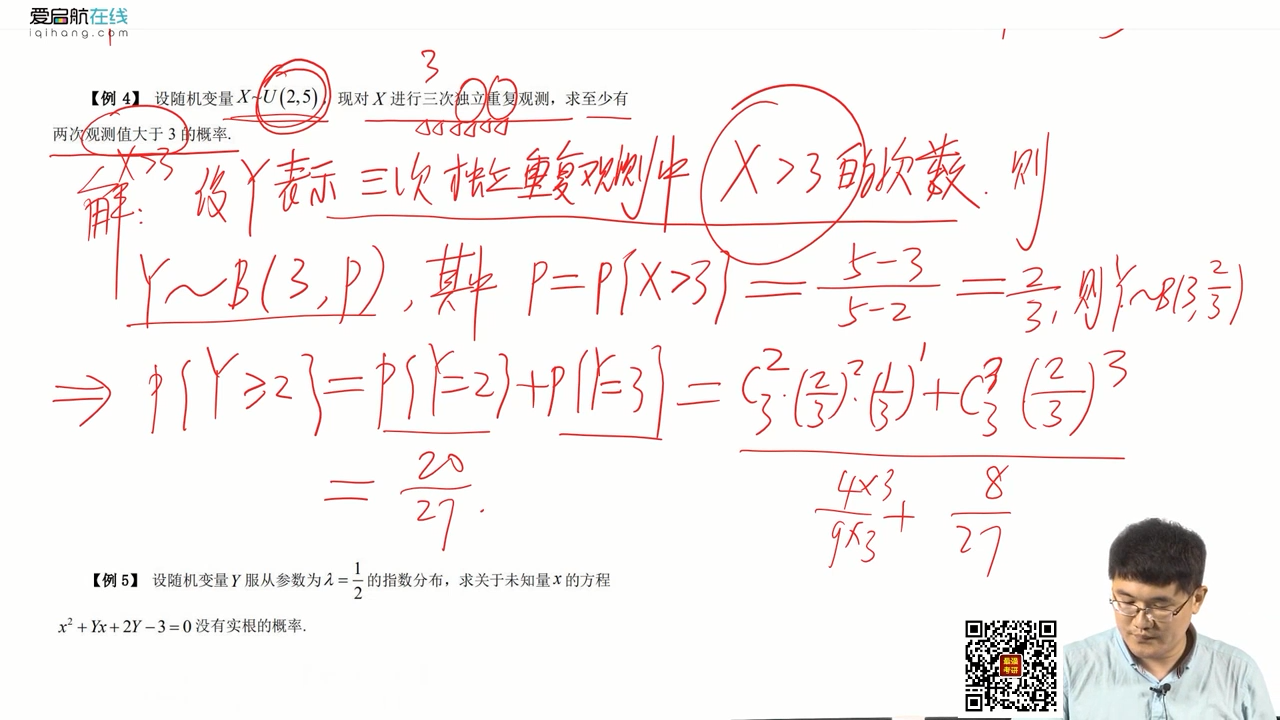 爱启航在线
iqihang.com
3
【例 4】 设随机变量 X~U(2,5)，现对 X 进行三次独立重复观测，求至少有
两次观测值大于 3 的概率.
X>3
解： 设Y表示三次独立重复观测中 X>3的次数. 则
Y~B(3,P), 其中 P=P{X>3}=(5-3)/(5-2)=2/3, 则Y~B(3,2/3)
⇒ P{Y≥2}=P{Y=2}+P{Y=3}=C₃²·(2/3)²·(1/3)¹+C₃³(2/3)³
=20/27. 4×3/9×3+8/27
【例 5】 设随机变量 Y 服从参数为 λ=1/2 的指数分布，求关于未知量 x 的方程
x²+Yx+2Y-3=0 没有实根的概率.
最强
考研